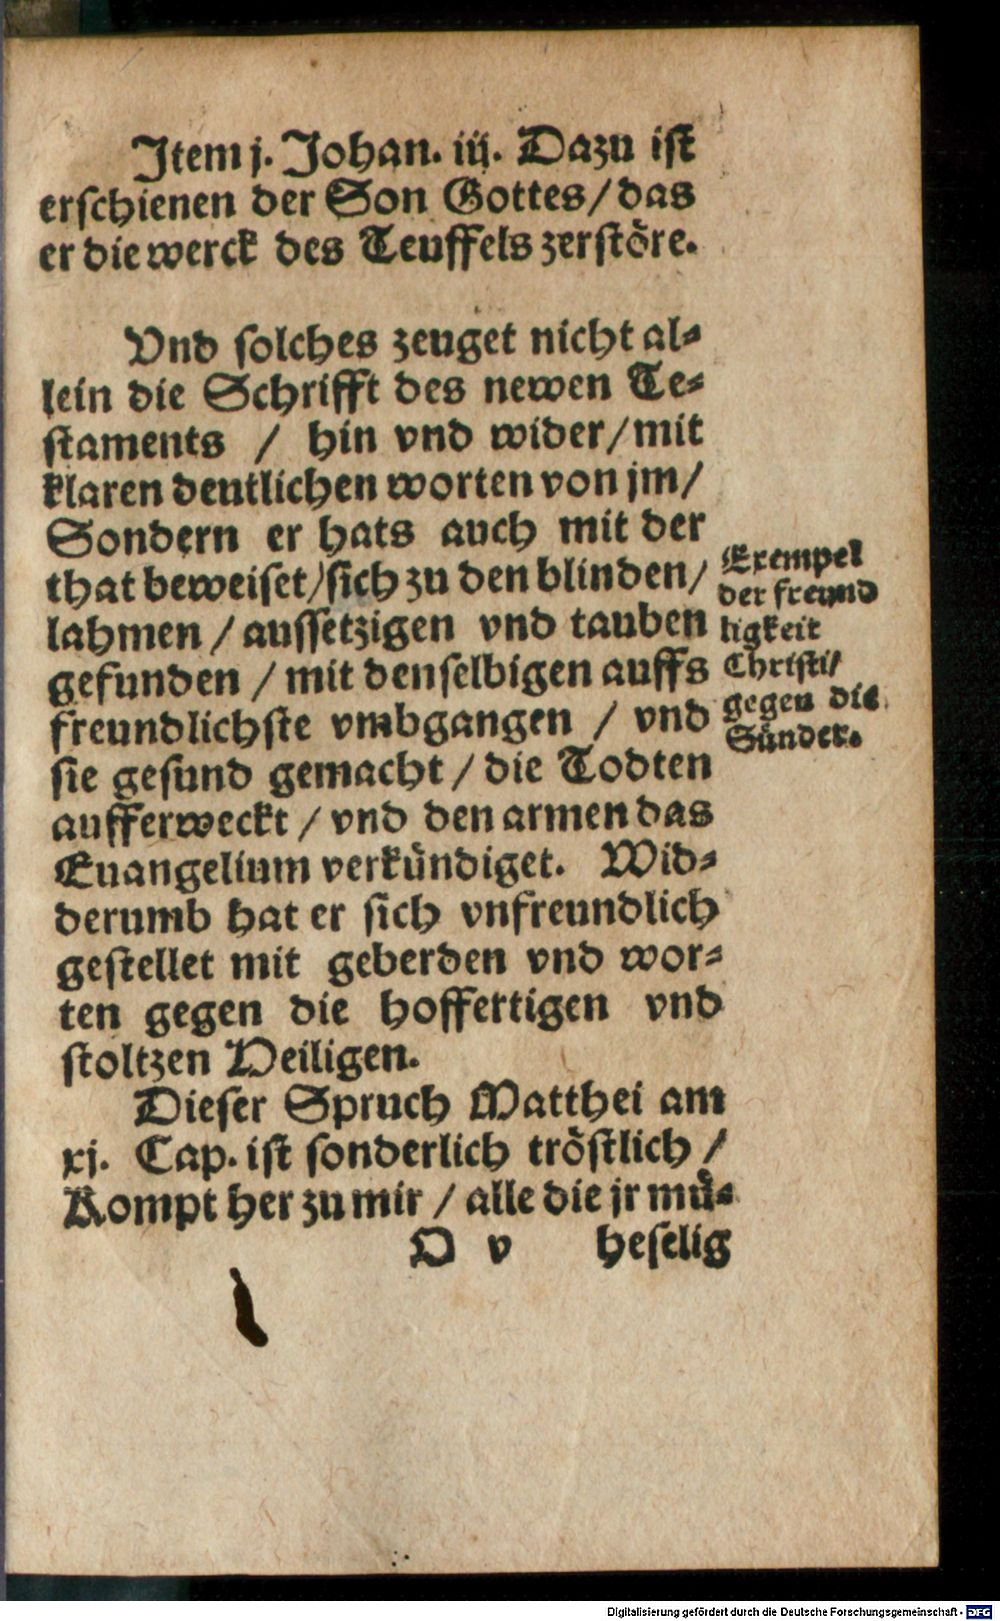 Jtem j. Johan. iij. Dazu ist
erschienen der Son Gottes / das
er die werck des Teuffels zerstöre.
Vnd solches zeuget nicht al-
lein die Schrifft des newen Te-
staments / hin vnd wider / mit
klaren deutlichen worten von jm /
Sondern er hats auch mit der
that beweiset / sich zu den blinden /
lahmen / aussetzigen vnd tauben
gefunden / mit denselbigen auffs
freundlichste vmbgangen / vnd
sie gesund gemacht / die Todten
aufferweckt / vnd den armen das
Euangelium verkündiget. Wid-
derumb hat er sich vnfreundlich
gestellet mit geberden vnd wor-
ten gegen die hoffertigen vnd
stoltzen Heiligen.
Exempel
der freund
ligkeit
Christi /
gegen die
Sünder.
Dieser Spruch Matthei am
xj. Cap. ist sonderlich tröstlich /
Kompt her zu mir / alle die jr mü-
O v heselig
Digitalisierung gefördert durch die Deutsche Forschungsgemeinschaft - DFG